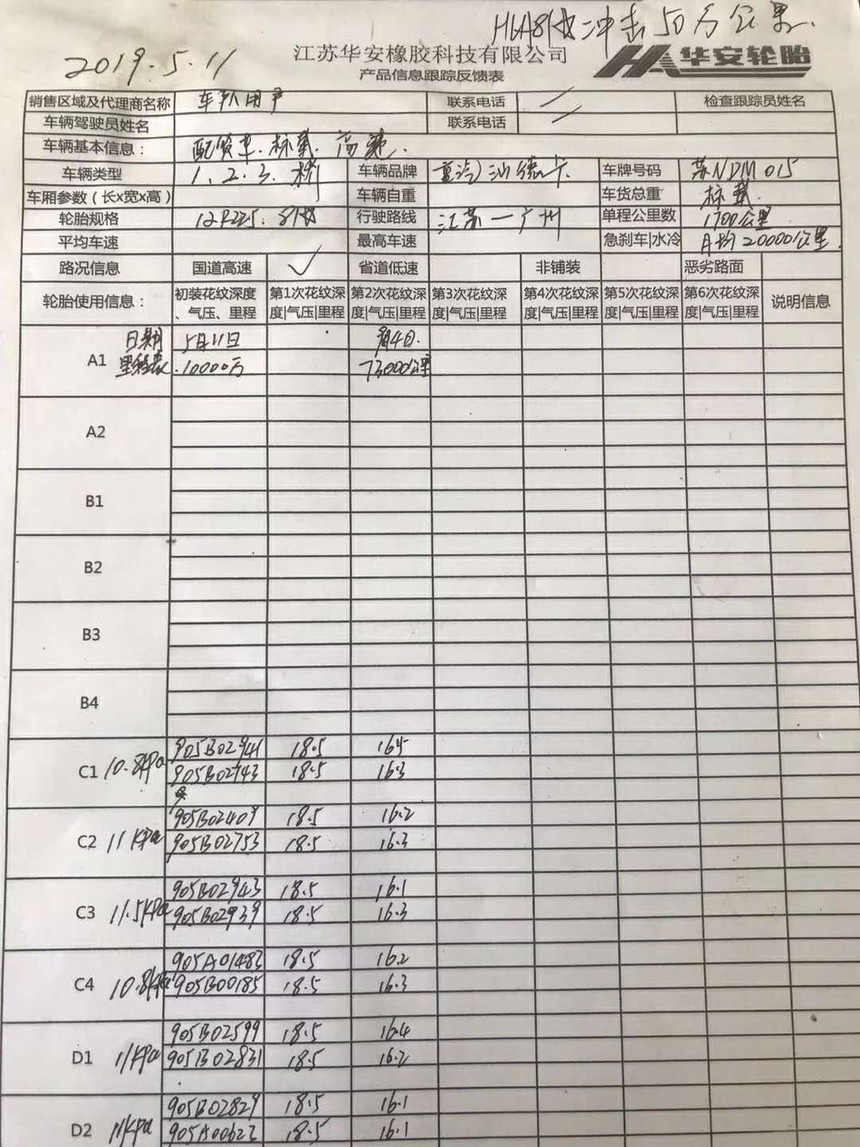 HLA81波冲击50万公里.
2019.5.11
江苏华安橡胶科技有限公司
HA 华安轮胎
产品信息跟踪反馈表
销售区域及代理商名称 车队用户 联系电话 检查跟踪员姓名
车辆驾驶员姓名 联系电话
车辆基本信息: 配货车.标载.高速.
车辆类型 1.2.3.桥 车辆品牌 重汽汕德卡 车牌号码 苏NDM015
车厢参数(长x宽x高) 车辆自重 车货总重 标载.
轮胎规格 12R225. 行驶路线 江苏一广州 单程公里数 1700公里
平均车速 最高车速 急刹车|水冷 月均20000公里.
路况信息 国道高速 ✓ 省道低速 非铺装 恶劣路面
轮胎使用信息: 初装花纹深度、气压、里程 第1次花纹深度|气压|里程 第2次花纹深度|气压|里程 第3次花纹深度|气压|里程 第4次花纹深度|气压|里程 第5次花纹深度|气压|里程 第6次花纹深度|气压|里程 说明信息
A1 日期 5月11日
里程表 10000万 73000公里
A2
B1
B2
B3
B4
C1 10.8KPa 905B02941 18.5 16.5
905B02743 18.5 16.3
C2 11KPa 905B02409 18.5 16.2
905B02753 18.5 16.3
C3 11.5KPa 905B02943 18.5 16.1
905B02939 18.5 16.3
C4 10.8KPa 905A01483 18.5 16.2
905B00185 18.5 16.3
D1 11KPa 905B02599 18.5 16.4
905B02831 18.5 16.2
D2 11KPa 905B02829 18.5 16.1
905A00622 18.5 16.1